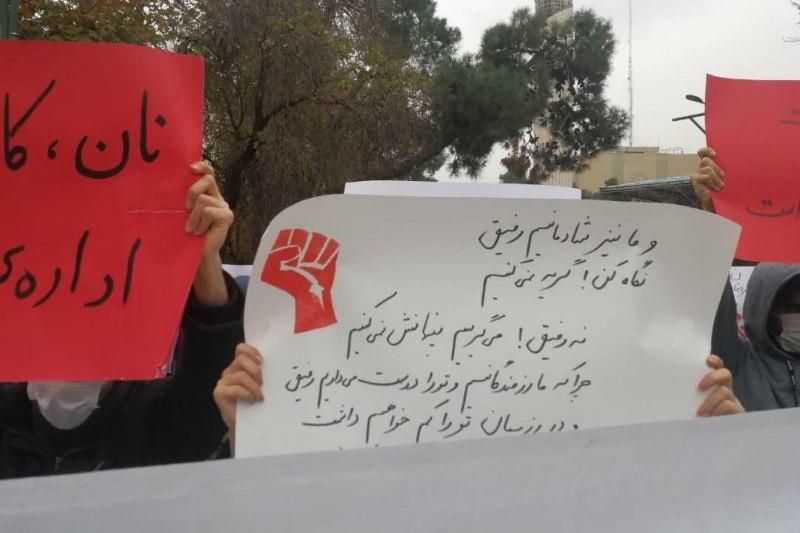 نان، کا
اداره
و ما نیز شادمانیم رفیق
نگاه کن! گریه نمی‌کنیم
نه رفیق! می‌گرییم پنهانش نمی‌کنیم
چرا که ما رزمندگانیم و تو را دوست می‌داریم رفیق
و در رزممان تو را کم خواهیم داشت
است